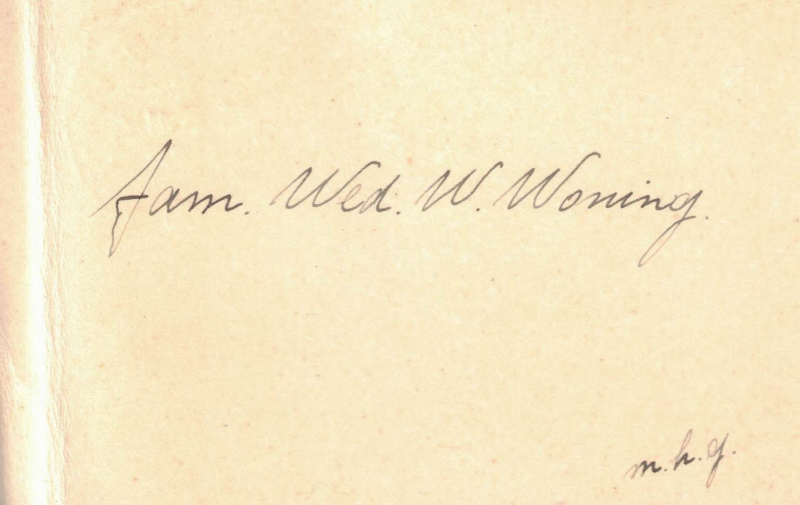 fam. Wed. W. Woning.
m.h.g.